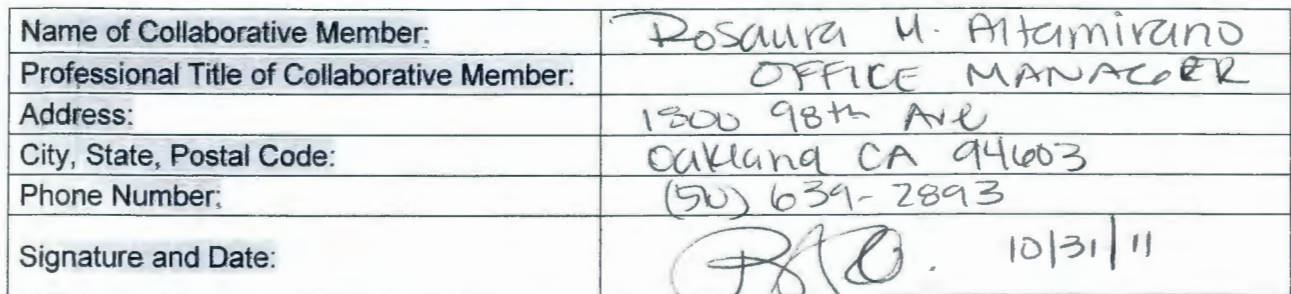 Name of Collaborative Member: Rosaura M. Altamirano
Professional Title of Collaborative Member: OFFICE MANAGER
Address: 1800 98th Ave
City, State, Postal Code: Oakland CA 94603
Phone Number: (510) 639-2893
Signature and Date: 10/31/11